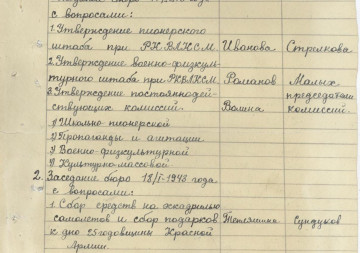 с вопросами:
1. Утверждение пионерского
штаба при РК ВЛКСМ Иванова Стрелкова
2. Утверждение военно-физкуль-
турного штаба при РКВЛКСМ. Романов Малых
3. Утверждение постояннодей- председатели
ствующих комиссий. Вошна комиссий.
1) Школьно-пионерской
2) Пропаганды и агитации
3) Военно-физкультурной
4) Культурно-массовой
2. Заседание бюро 18/I-1943 года
с вопросами:
1. Сбор средств на эскадрилью
самолетов и сбор подарков Сундуков
к дню 25 годовщины Красной
Армии.